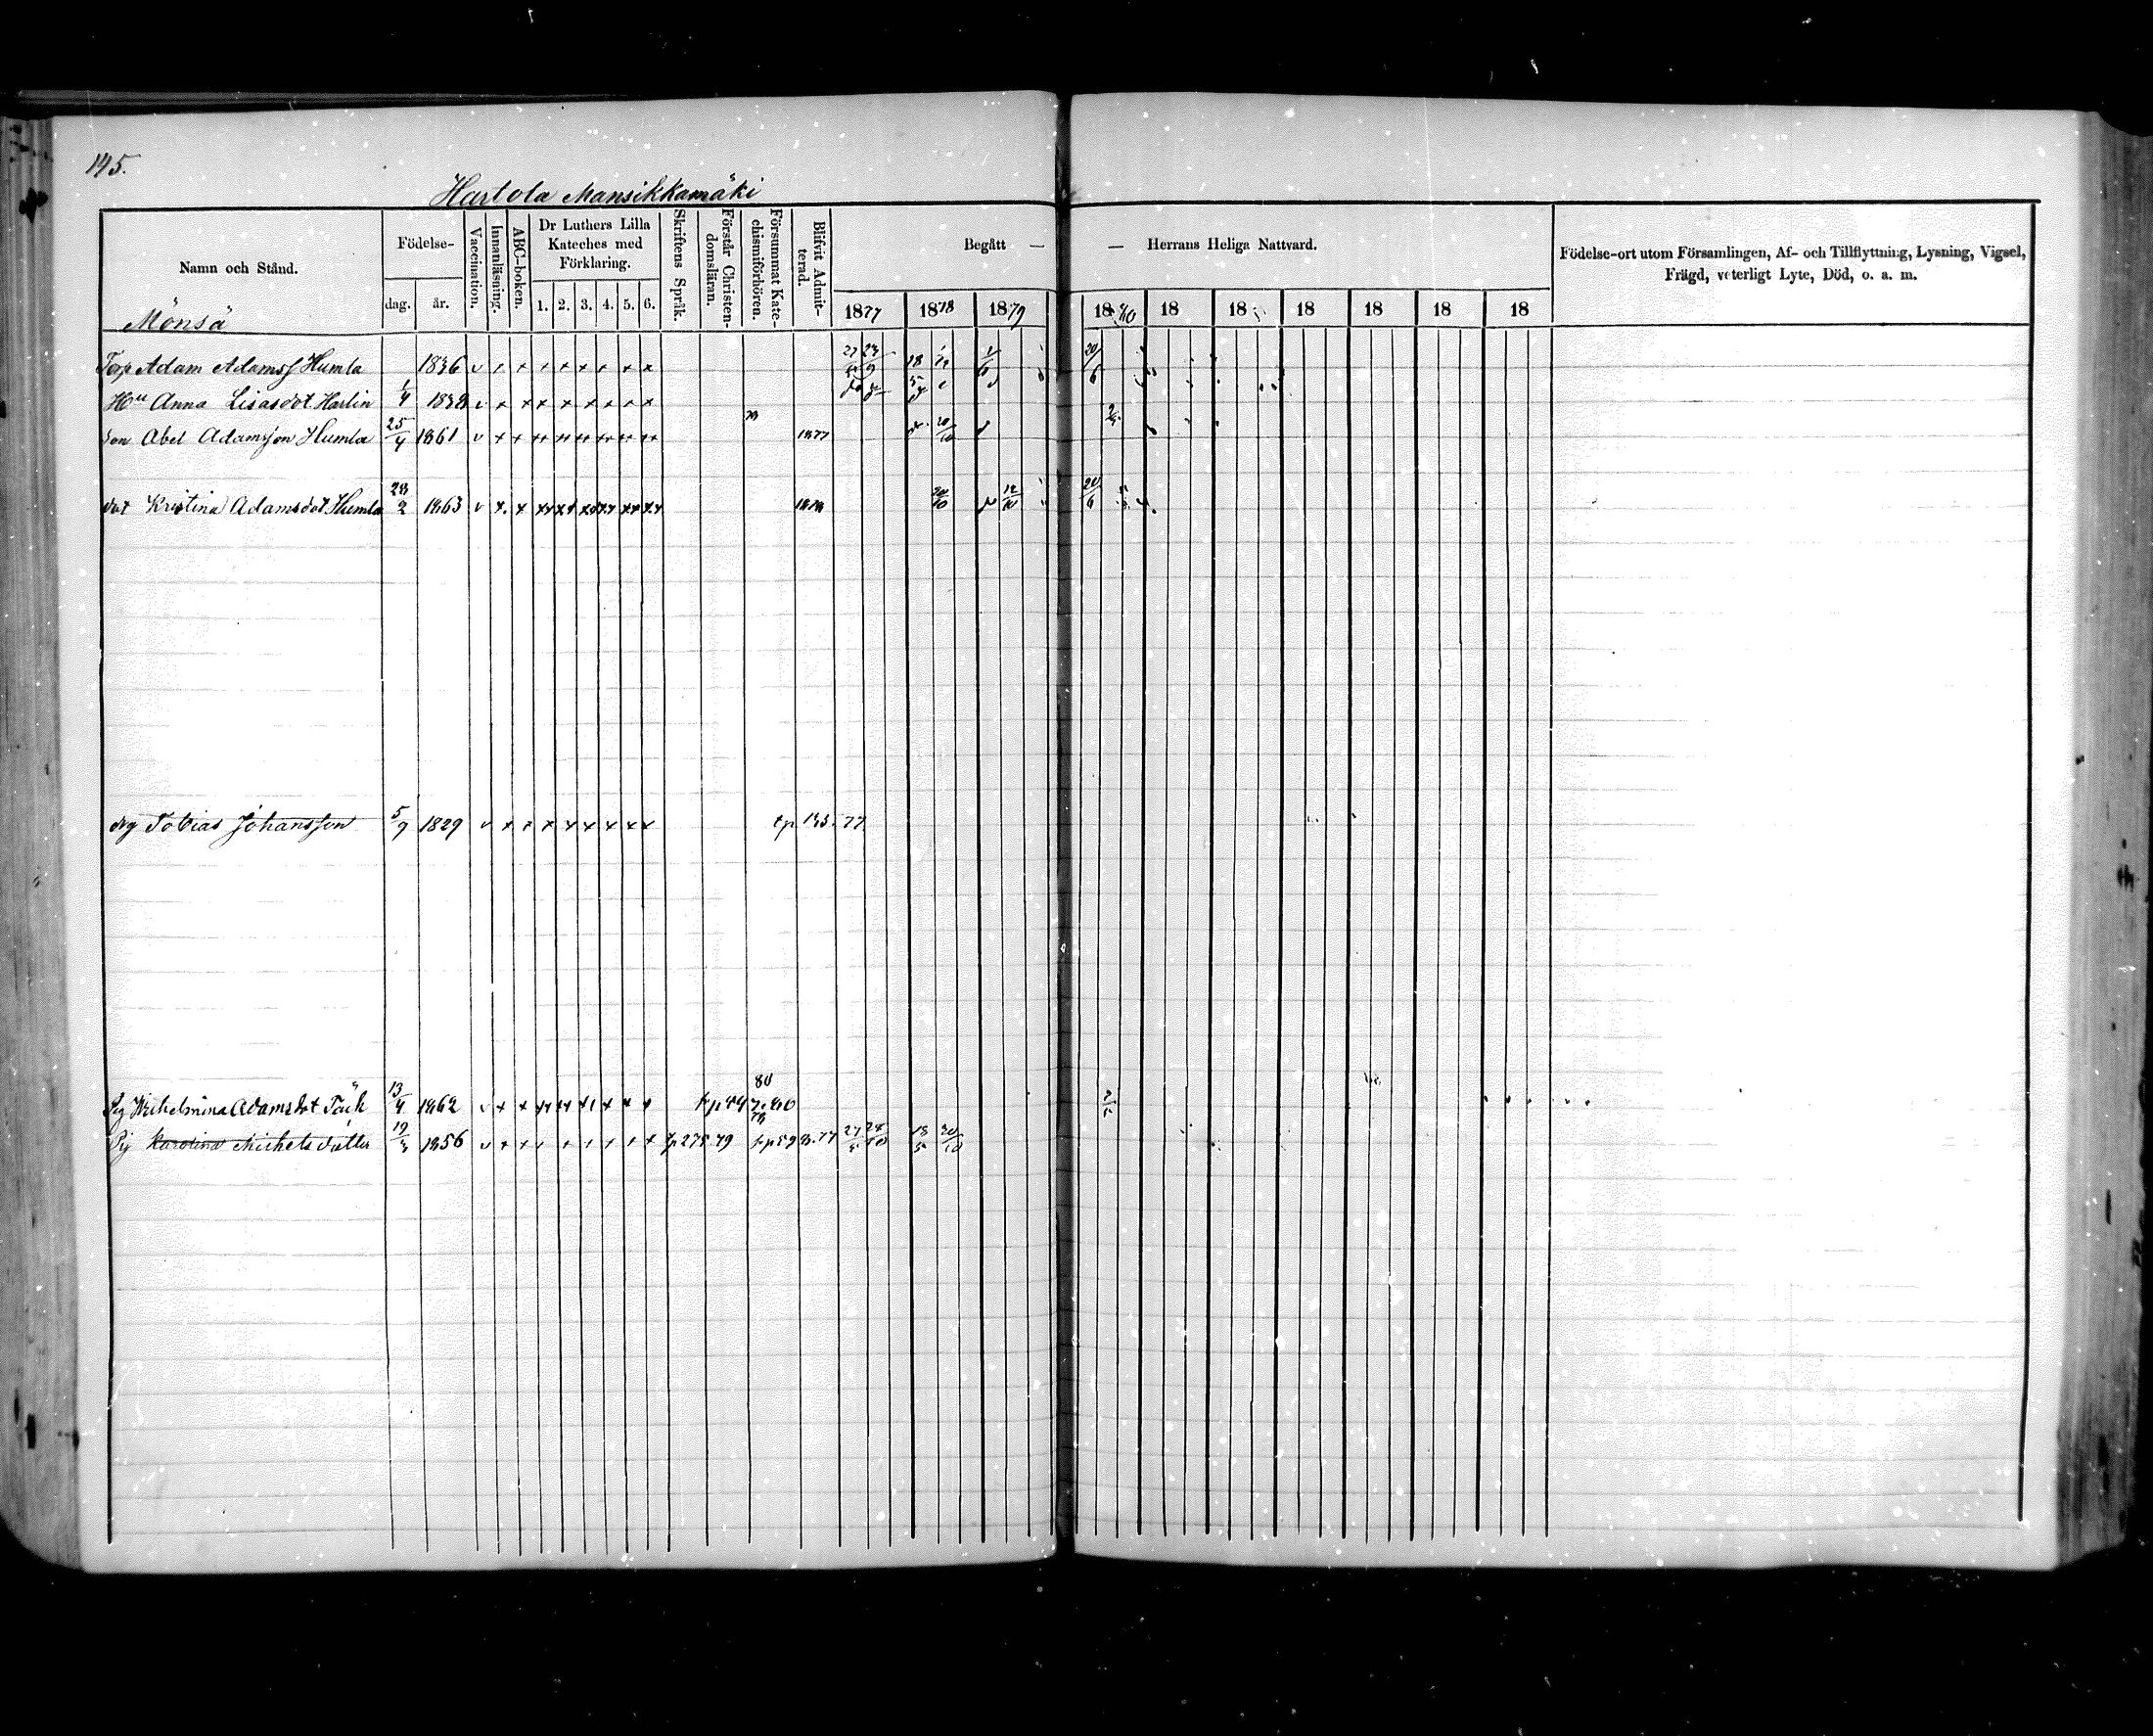 145.
Hartola Mansikkamäki
Namn och Stånd.
Födelse-
dag. år.
Vaccination.
Innanläsning.
ABC-boken.
Dr Luthers Lilla
Kateches med
Förklaring.
1. 2. 3. 4. 5. 6.
Skriftens Språk.
Förstår Christen-
domsläran.
Försummat Kate-
chismiförhören.
Blifvit Admit-
terad.
Begått — — Herrans Heliga Nattvard.
1877 1878 1879 1880 18 18 18 18 18 18
Födelse-ort utom Församlingen, Af- och Tillflyttning, Lysning, Vigsel,
Frägd, veterligt Lyte, Död, o. a. m.
Mönsä
Torp Adam Adamss Humla 1836 v x x x x x x x x 27/5 23/9 18/5
Hu Anna Lisasdot Harlin 1/4 1838 v x x x x x x x x 20/6
Son Abel Adamsson Humla 25/4 1861 v x x xx xx xx xx xx xx 1877 20/10
dot Kristina Adamsdot Humla 28/2 1863 v x x xx xx xx xx xx xx 1878 20/10 12/10 20/6
drg Tobias Johansson 5/9 1829 v x x x x x x x x tp 135. 77
80
Pig Wilhelmina Adamsdot Täck 13/4 1862 v x x xx xx x x x x
Pig Karolina Michelsdotter 19/3 1856 v x x x x x x x x tp 275. 79 27/5 28/10 18/5 20/10